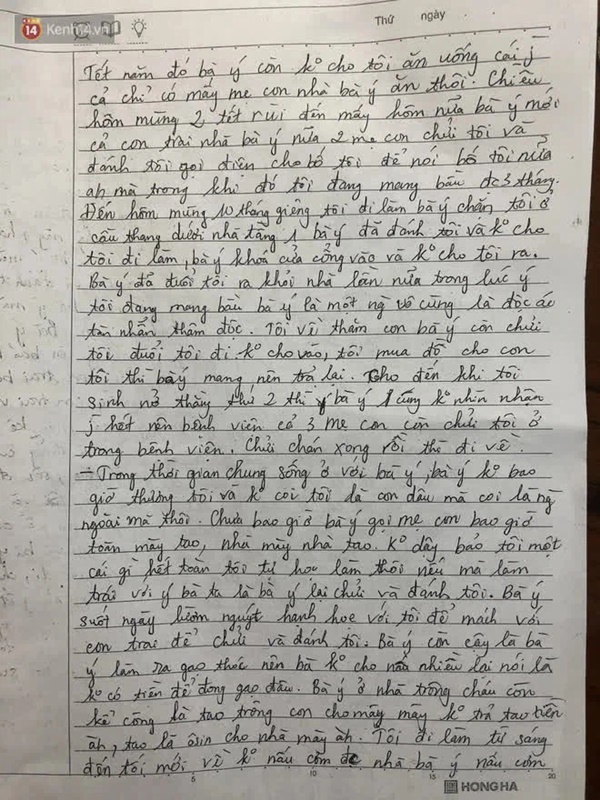 14 Kenh14.vn
Thứ ngày
Tết năm đó bà ý còn k° cho tôi ăn uống cái j
cả chỉ có mấy mẹ con nhà bà ý ăn thôi. Chiều
hôm mùng 2 tết rùi đến mấy hôm nữa bà ý mới
cả con trai nhà bà ý nữa 2 mẹ con chửi tôi và
đánh tôi gọi điện cho bố tôi để nói bố tôi nữa
ah mà trong khi đó tôi đang mang bầu đc 3 tháng.
Đến hôm mùng 10 tháng giêng tôi đi làm bà ý chặn tôi ở
cầu thang dưới nhà tầng 1 bà ý đã đánh tôi và k° cho
tôi đi làm, bà ý khoá cửa cổng vào và k° cho tôi ra.
Bà ý đã đuổi tôi ra khỏi nhà lần nữa trong lúc ý
tôi đang mang bầu bà ý là một ng vô cùng là độc ác
tàn nhẫn thâm độc. Tôi về thăm con bà ý còn chửi
tôi đuổi tôi đi k° cho vào, tôi mua đồ cho con
tôi thì bà ý mang nên trả lại. Cho đến khi tôi
sinh nở tháng thứ 2 thì bà ý cũng k° nhìn nhận
j hết nên bệnh viện cả 3 mẹ con còn chửi tôi ở
trong bệnh viện. Chửi chán xong rồi thì đi về.
- Trong thời gian chung sống ở với bà ý, bà ý k° bao
giờ thương tôi và k° coi tôi là con dâu mà coi là ng
ngoài mà thôi. Chưa bao giờ bà ý gọi mẹ con bao giờ
toàn mày tao, nhà mày nhà tao. K° dậy bảo tôi một
cái gì hết toàn tôi tự học làm thôi nếu mà làm
trái với ý bà ta là bà ý lại chửi và đánh tôi. Bà ý
suốt ngày lườm nguýt hạnh hoẹ với tôi để mách với
con trai để chửi và đánh tôi. Bà ý còn cậy là bà
ý làm ra gạo thóc nên bà k° cho nhiều lại nói là
k° có tiền để đong gạo đâu. Bà ý ở nhà trông cháu còn
kể công là tao trông con cho mày mày k° trả tao tiền
àh, tao là ôsin cho nhà mày àh. Tôi đi làm từ sáng
đến tối mới về k° nấu cơm đc nhà bà ý nấu cơm
5 10 15 20
HONG HA